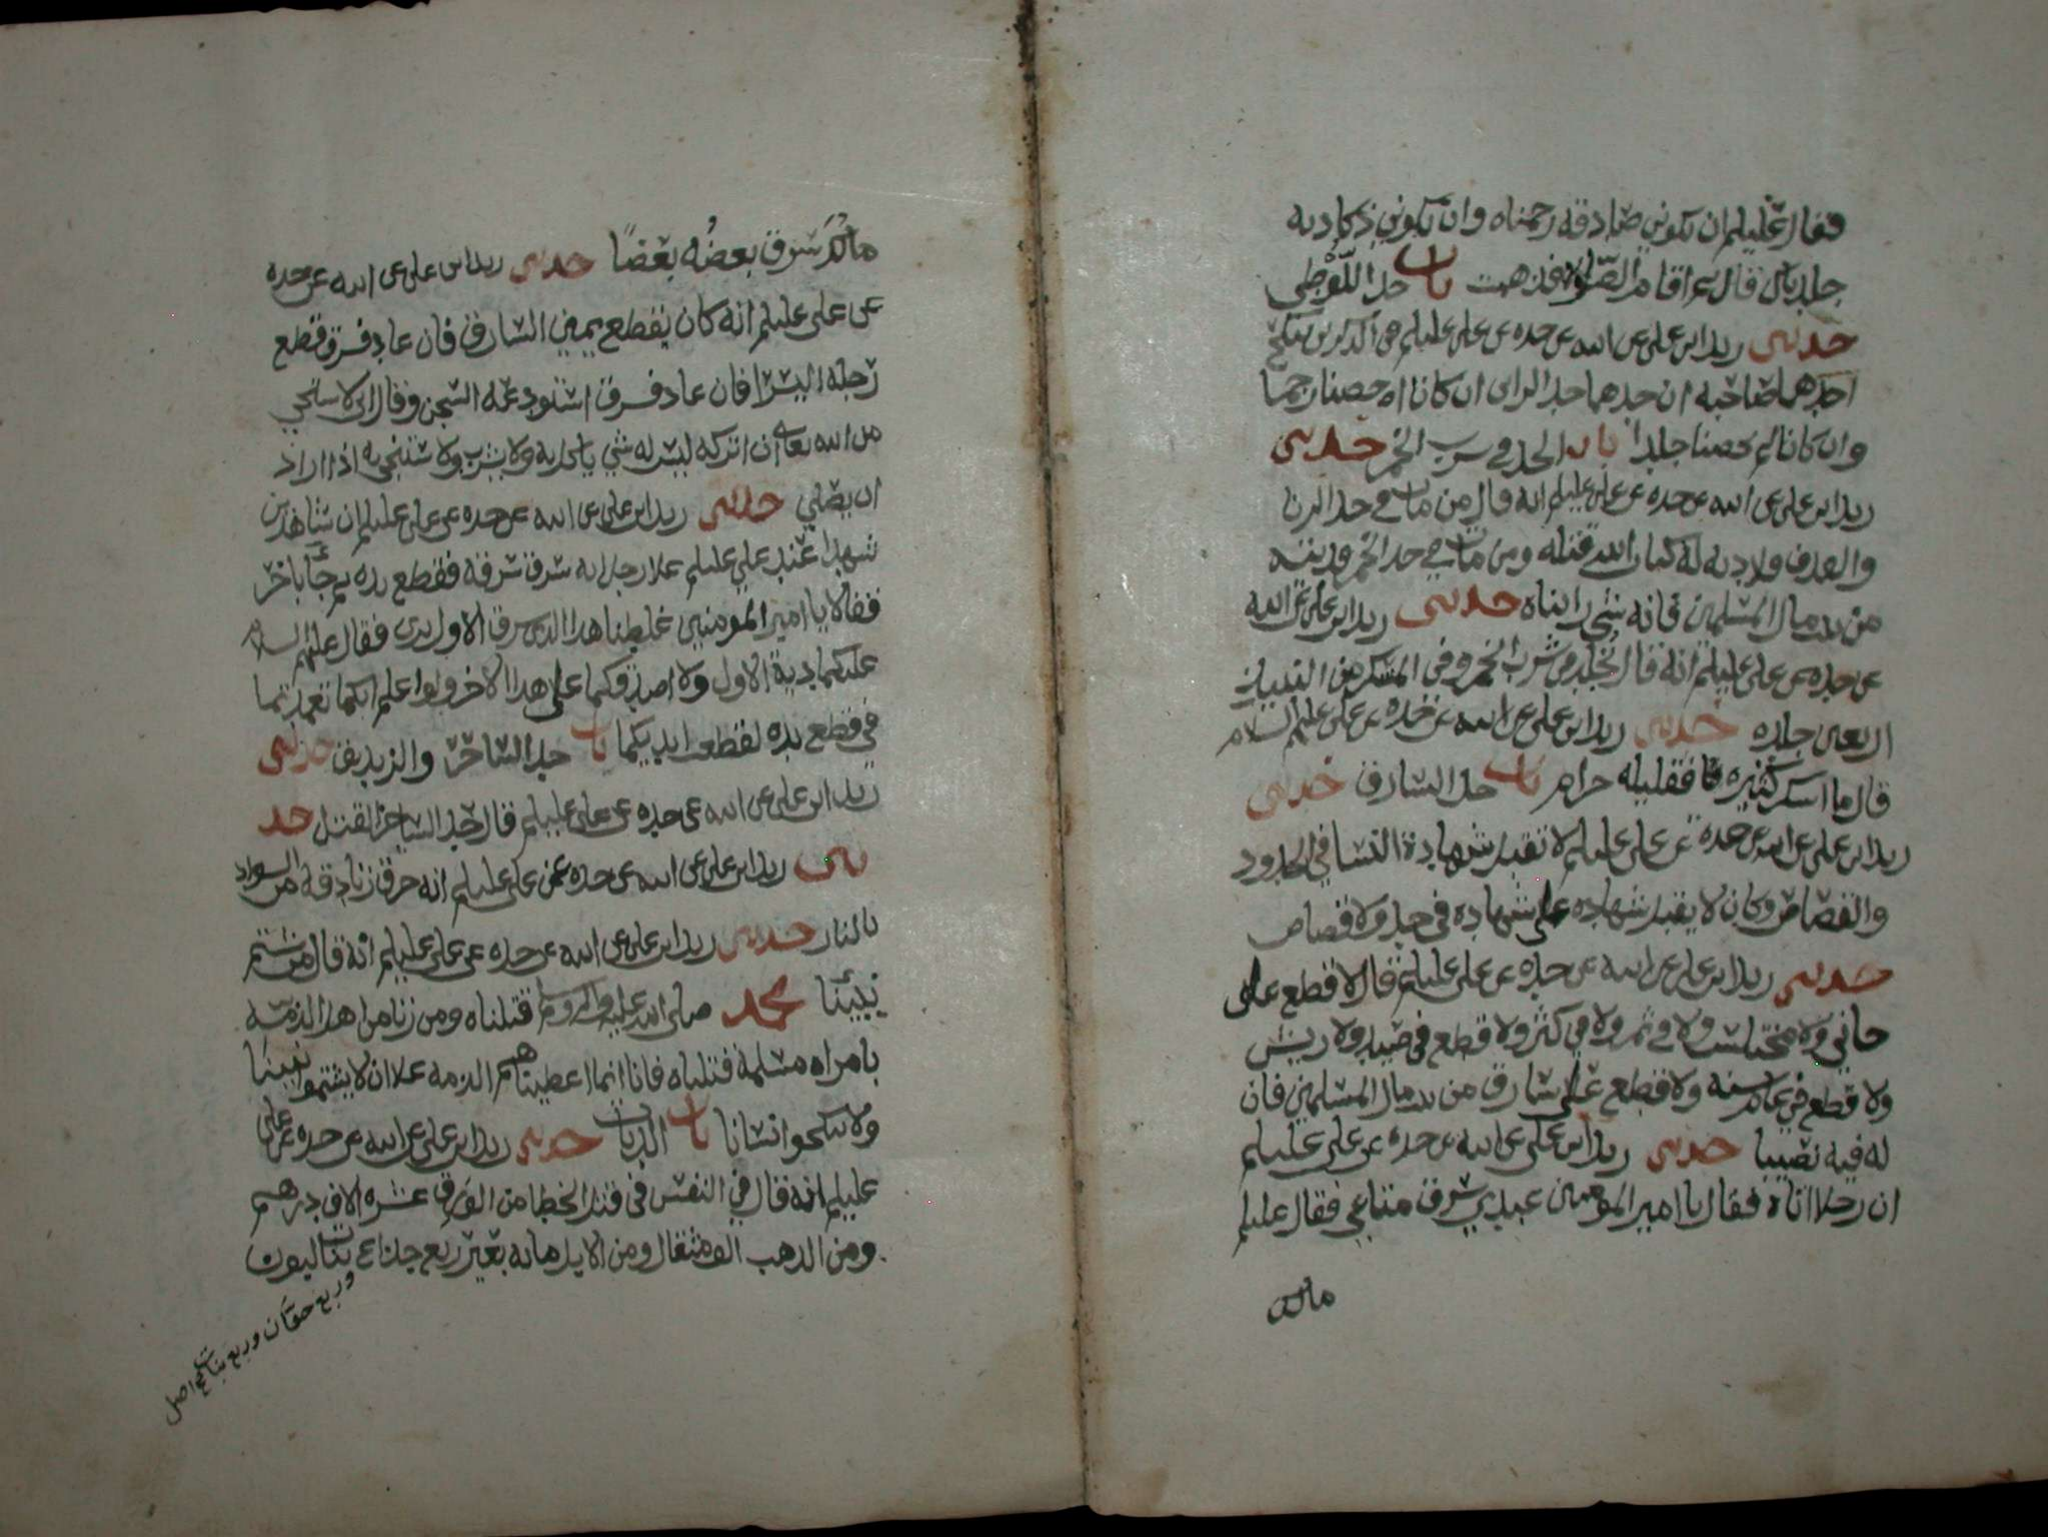 فقال عليلم ان تكوني صادقه رجمناه وان تكوني كاذبه
جلدناك قال ثم اقام الصلوة فذهبت باب حد اللوطي
حدثني زيد ابن علي عن ابيه عن جده عن علي عليلم في الذكرين ينكح
احدهما صاحبه ان حدهما حد الزاني ان كانا احصنا رجما
وان كانا لم يحصنا جلدا باب الحد في شرب الخمر حدثني
زيد ابن علي عن ابيه عن جده عن علي عليلم انه قال من مات في حد الزنا
والقذف فلا ديه له كتاب الله قتله ومن مات في حد الخمر فديته
من بيت مال المسلمين فانه شي رايناه حدثني زيد ابن علي عن ابيه
عن جده عن علي عليلم انه قال يجلد في شرب الخمر وفي المسكر من النبيذ
اربعين جلده حدثني زيد ابن علي عن ابيه عن جده عن علي عليه السلام
قال ما اسكر كثيره فقليله حرام باب حد السارق حدثني
زيد ابن علي عن ابيه عن جده عن علي عليلم لا تقبل شهادة النسا في الحدود
والقصاص وكان لا يقبل شهاده على شهاده في حد ولا قصاص
حدثني زيد ابن علي عن ابيه عن جده عن علي عليلم قال لا قطع على
خاين ولا مختلس ولا في ثمر ولا في كثر ولا قطع في صيد ولا ريش
ولا قطع في عام سنه ولا قطع على سارق من بيت مال المسلمين فان
له فيه نصيبا حدثني زيد ابن علي عن ابيه عن جده عن علي عليلم
ان رجلا اتاه فقال يا امير المومنين عبدي سرق متاعي فقال عليلم
مالك
مالك سرق بعضه بعضا حدثني زيد ابن علي عن ابيه عن جده
عن علي عليلم انه كان يقطع يمين السارق فان عاد فسرق قطع
رجله اليسرا فان عاد فسرق استودعه السجن وقال اني لا ستحي
من الله تعالى ان اتركه ليس له شي ياكل به ولا يشرب ولا ستنجي به اذا اراد
ان يصلي حدثني زيد ابن علي عن ابيه عن جده عن علي عليلم ان شاهدين
شهدا عند علي عليلم علا رجل انه سرق سرقه فقطع يده ثم جآ باخر
فقالا يا امير المومنين غلطنا هذا الذي سرق الاول بري فقال عليهم السلام
عليكما دية الاول ولا اصدقكما على هذا الاخر ولوا علم انكما تعمدتما
في قطع يده لقطعت ايديكما باب حد الساخر والزنديق حدثني
زيد ابن علي عن ابيه عن جده عن علي عليلم قال حد الساخر القتل حد
ثني زيد ابن علي عن ابيه عن جده عن علي عليلم انه حرق زنادقه من السواد
بالنار حدثني زيد ابن علي عن ابيه عن جده عن علي عليلم انه قال من شتم
نبينا محمد صلى الله عليه واله وسلم قتلناه ومن زنا من اهل الذمه
بامراه مسلمة قتلناه فانا انما اعطيناهم الذمه علا ان لا يشتموا نبينا
ولا ينكحوا نسانا باب الديات حدثني زيد ابن علي عن ابيه عن جده عن علي
عليلم انه قال في النفس في قتل الخطا من الورق عشره الاف درهم
ومن الذهب الف مثقال ومن الابل مايه بعير ربع جذاع ربع بنات لبون
وربع حقاق وربع بنات مخاض اصل